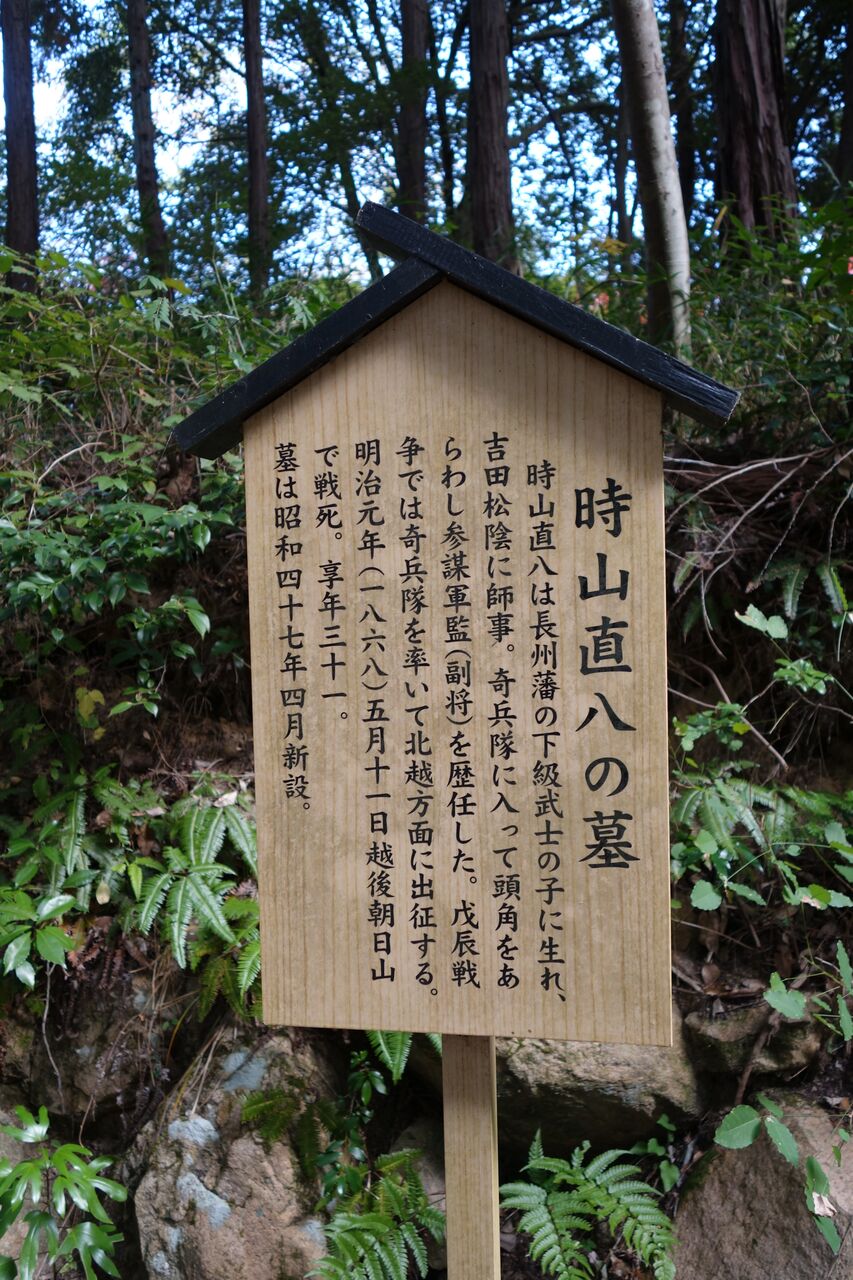 時山直八の墓
時山直八は長州藩の下級武士の子に生れ、
吉田松陰に師事。奇兵隊に入って頭角をあ
らわし参謀軍監(副将)を歴任した。戊辰戦
争では奇兵隊を率いて北越方面に出征する。
明治元年(一八六八)五月十一日越後朝日山
で戦死。享年三十一。
墓は昭和四十七年四月新設。